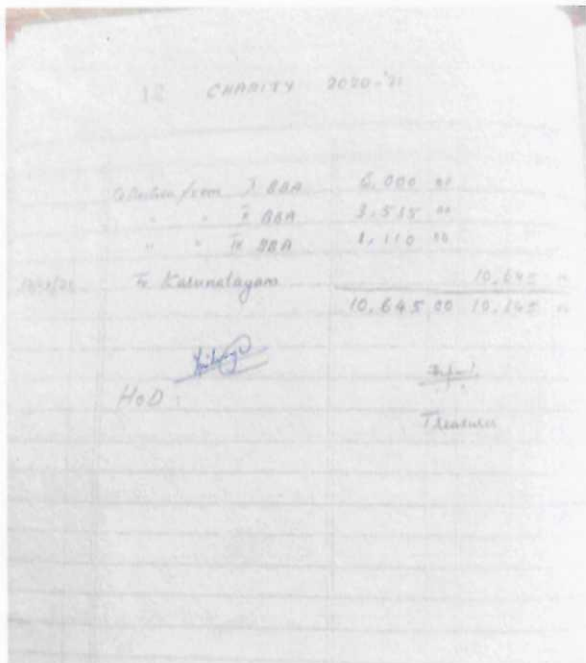 12 CHARITY 2020-'21
Collection from I BBA 6,000 00
" " II BBA 3,535 00
" " III BBA 1,110 00
To Karunalayam 10,645 00
10,645 00 10,645 00
HOD :
Treasurer